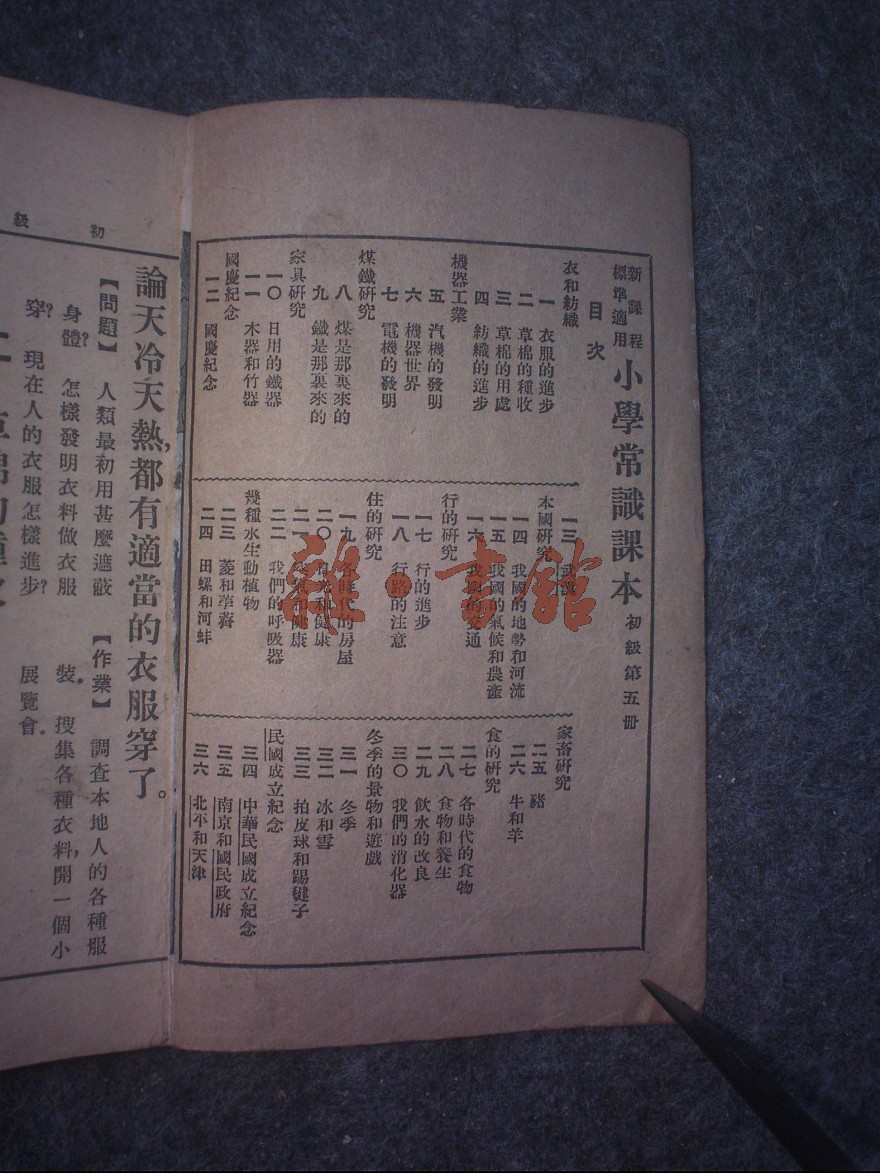 新課程
標準適用
小學常識課本 初級第五册
目次
衣和紡織
一 衣服的進步
二 草棉的種收
三 草棉的用處
四 紡織的進步
機器工業
五 汽機的發明
六 機器世界
七 電機的發明
煤鐵研究
八 煤是那裏來的
九 鐵是那裏來的
家具研究
一〇 日用的鐵器
一一 木器和竹器
國慶紀念
一二 國慶紀念
一三 武漢
本國研究
一四 我國的地勢和河流
一五 我國的氣候和農產
一六 我國的交通
行的研究
一七 行的進步
一八 行路的注意
住的研究
一九 各時代的房屋
二〇 和健康
二一 和健康
二二 我們的呼吸器
幾種水生動植物
二三 菱和荸薺
二四 田螺和河蚌
家畜研究
二五 豬
二六 牛和羊
食的研究
二七 各時代的食物
二八 食物和養生
二九 飲水的改良
三〇 我們的消化器
冬季的景物和遊戲
三一 冬季
三二 冰和雪
三三 拍皮球和踢毽子
民國成立紀念
三四 中華民國成立紀念
三五 南京和國民政府
三六 北平和天津
雜·書館
初級
論天冷天熱,都有適當的衣服穿了。
【問題】 人類最初用甚麼遮蔽
身體? 怎樣發明衣料做衣服
穿? 現在人的衣服怎樣進步?
【作業】 調查本地人的各種服
裝。 搜集各種衣料,開一個小
展覽會。